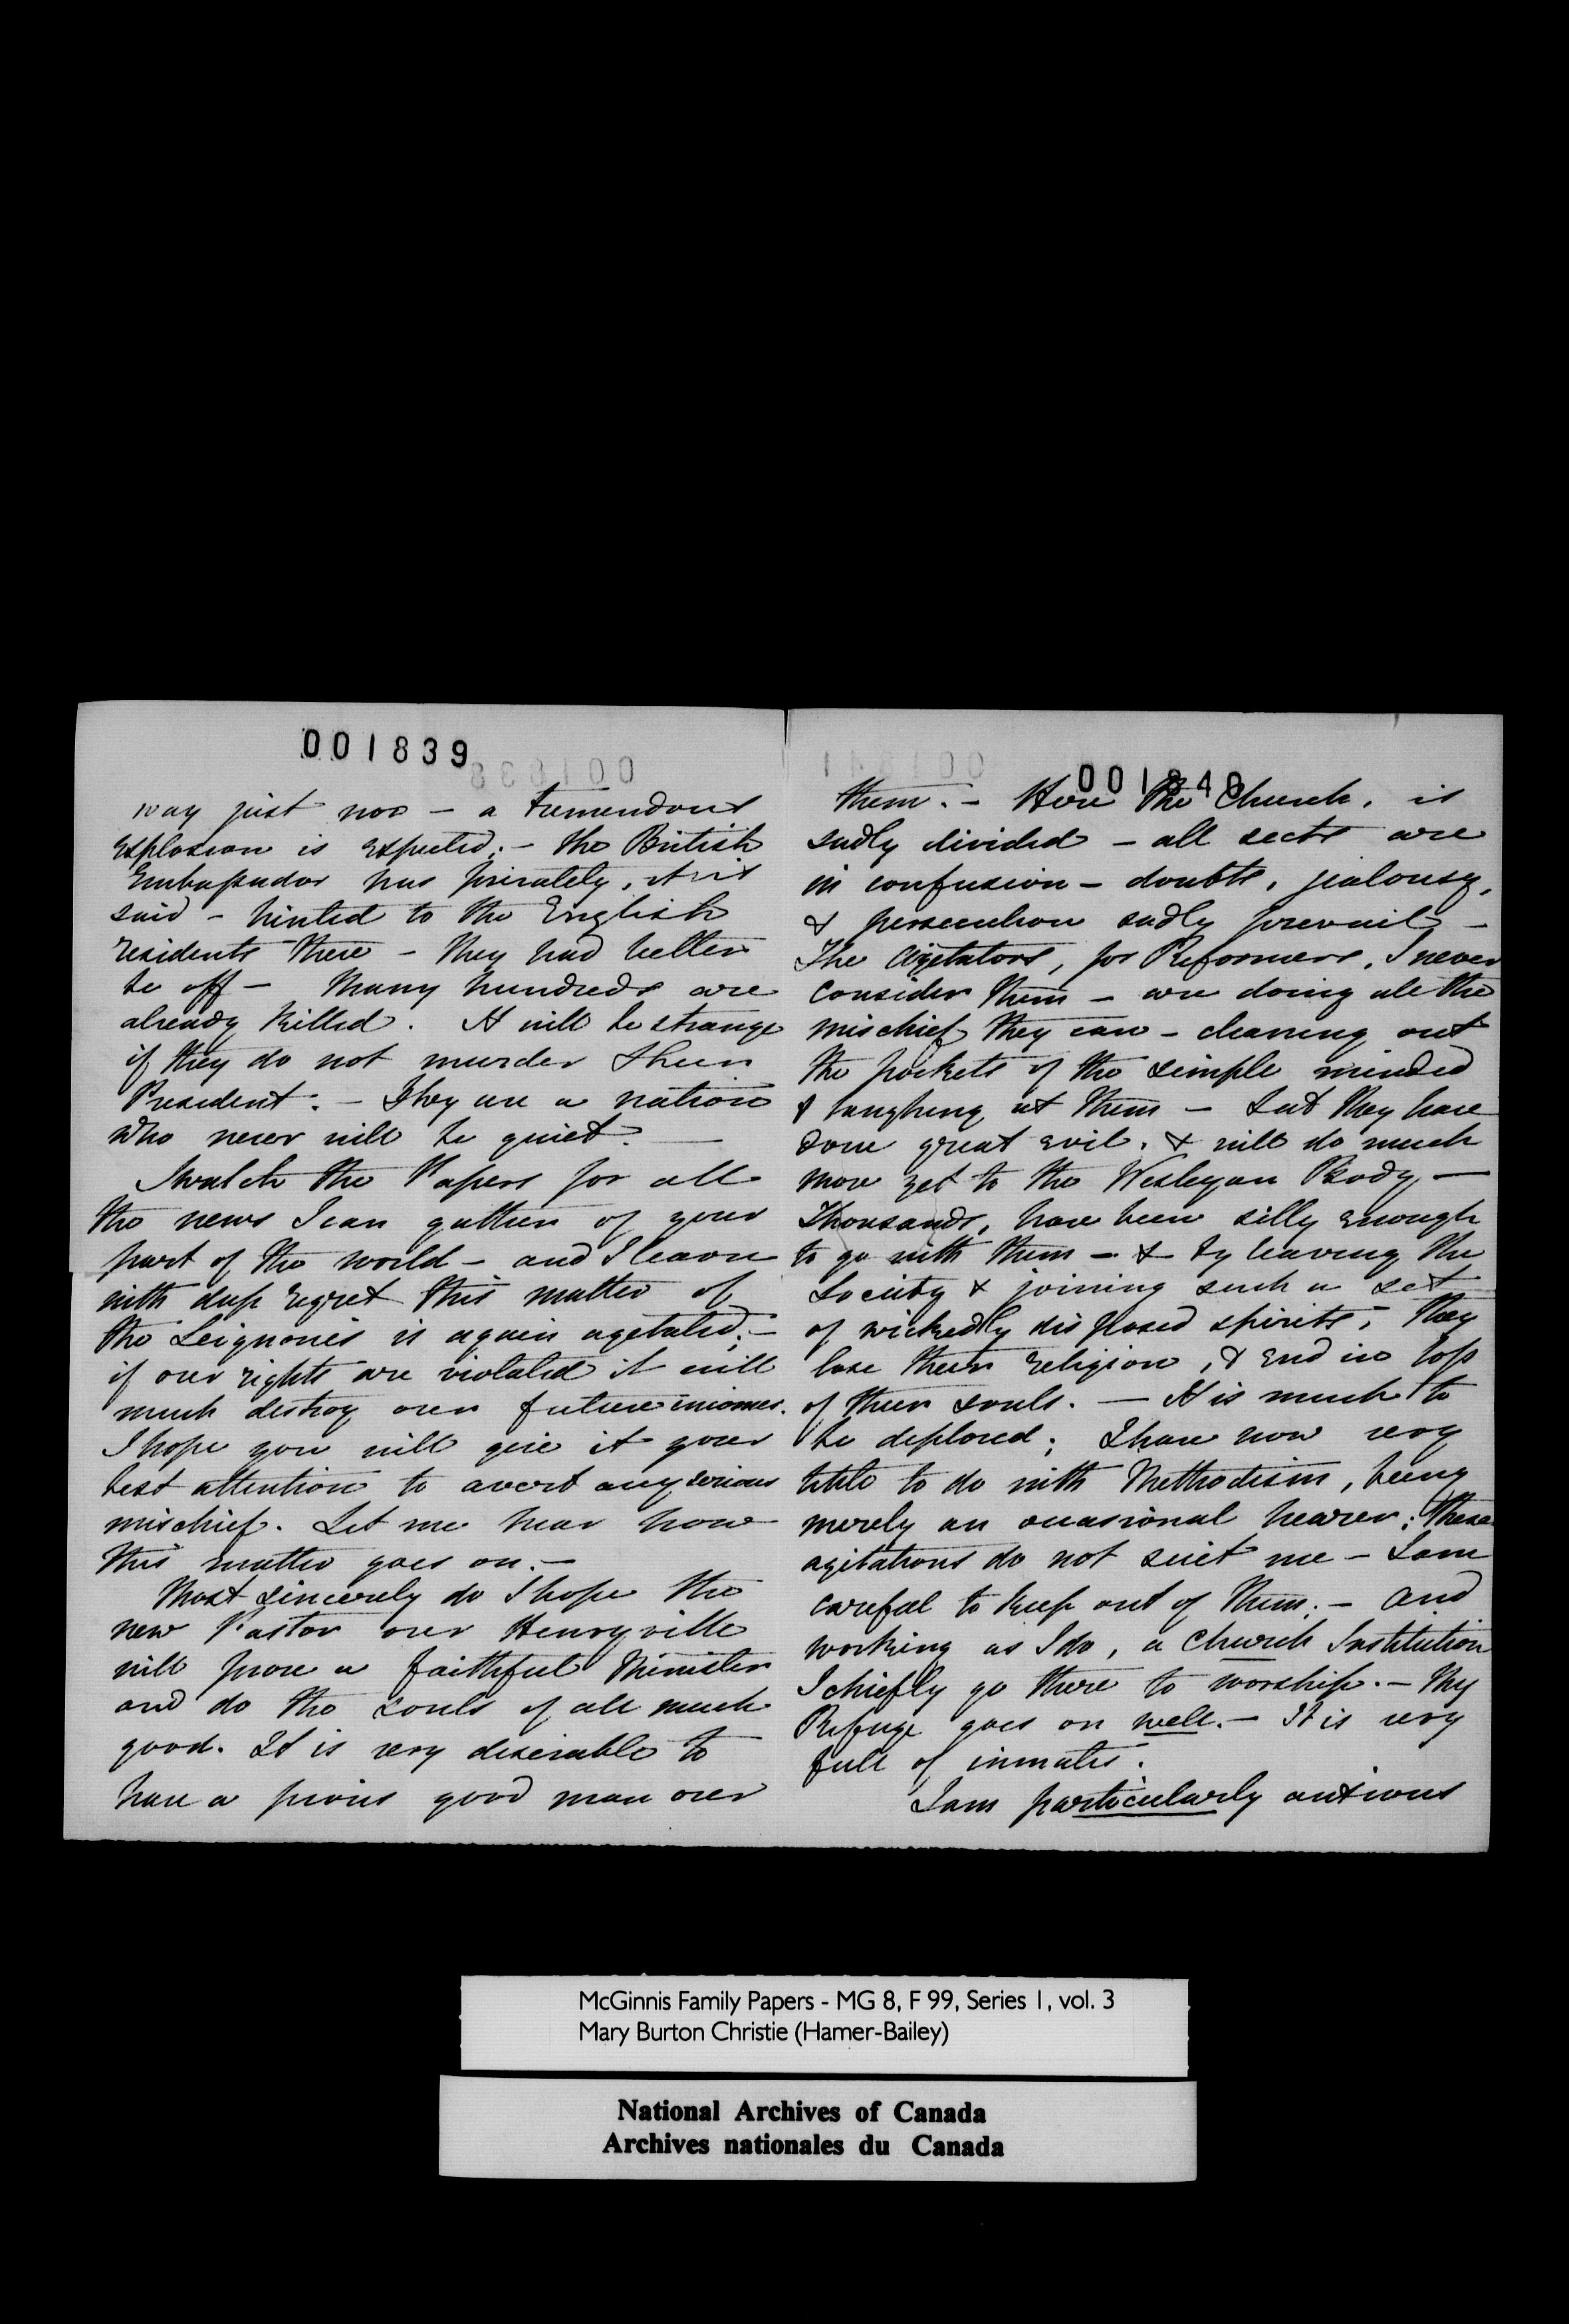 001839
way just now - a tremendous
explosion is expected; - the British
Embassador has privately, it is
said - hinted to the English
residents there - they had better
be off - Many hundreds are
already killed. It will be strange
if they do not murder their
President. - They are a nation
who never will be quiet. -
I watch the Papers for all
the news I can gather of your
part of the world - and I learn
with deep regret this matter of
the Seignories is again agetated; -
if our rights are violated it will
much destroy our future incomes.
I hope you will give it your
best attention to avert any serious
mischief. Let me hear how
this matter goes on. -
Most sincerely do I hope the
new Pastor over Henryville
will prove a faithful Minister
and do the souls of all much
good. It is very desirable to
have a pious good man over
001840
them. - Here the Church, is
sadly divided - all sects are
in confusion - doubts, jealousy,
& persecution sadly prevail -
The Agetators, for Reformers, I never
consider them - are doing all the
mischief they can - cleaning out
the pockets of the simple minded
& laughing at them - but they have
done great evil, & will do much
more yet to the Wesleyan Body -
Thousands, have been silly enough
to go with them - & by leaving the
Society & joining such a set
of wickedly disposed spirits, they
lose their religion, & end in loss
of their souls. - It is much to
be deplored; I have now very
little to do with Methodism, being
merely an occasional hearer; these
agitations do not suit me - I am
careful to keep out of them; - and
working as I do, a Church Institution
I chiefly go there to worship. - My
Refuge goes on well. - It is very
full of inmates.
I am particularly anxious
McGinnis Family Papers - MG 8, F 99, Series 1, vol. 3
Mary Burton Christie (Hamer-Bailey)
National Archives of Canada
Archives nationales du Canada